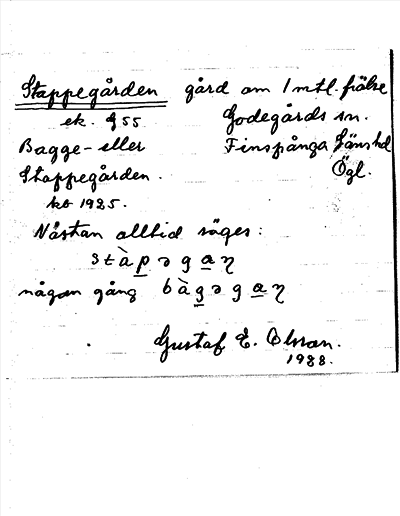 Stappegården gård om 1 mtl. frälse
ek. G 55 Godegårds sn.
Bagge- eller Finspånga Länshd
Stappegården. Ögl.
kb 1925.
Nästan alltid säges:
stàpəgaŋ
någon gång bàgəgaŋ
Gustaf E. Olsson.
1988.